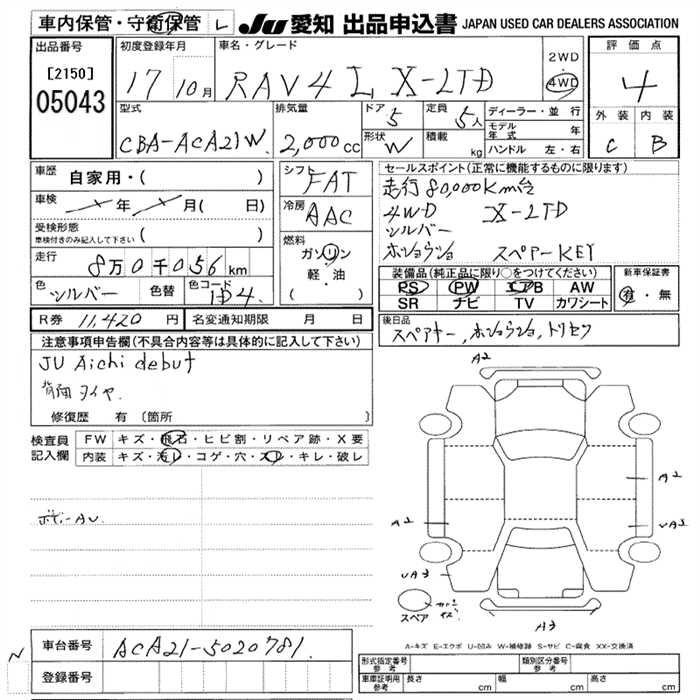 車内保管・守衛保管 レ
JU 愛知 出品申込書 JAPAN USED CAR DEALERS ASSOCIATION
出品番号
[2150]
05043
初度登録年月
17 10月
車名・グレード
RAV4 L X-LTD
2WD
4WD
評価点
4
外装 内装
C B
型式
CBA-ACA21W
排気量
2,000cc
ドア 5
定員 5人
形状 W
積載 kg
ディーラー・並行
モデル年式 年
ハンドル 左・右
車歴 自家用・( )
車検 年 月( 日)
受検形態
車検付きのみ記入して下さい ( )
走行
8万0千056km
色 シルバー 色替 色コード 1D4
シフト FAT
冷房 AAC
燃料
ガソリン
軽・油
( )
セールスポイント(正常に機能するものに限ります)
走行80,000Km台
4WD X-LTD
シルバー
ホショウショ スペアーKEY
装備品(純正品に限り○をつけてください)
PS PW エアB AW
SR ナビ TV カワシート
新車保証書
有・無
R券 11,420円 名変通知期限 月 日
後日品
スペアキー、ホショウショ、トリセツ
注意事項申告欄(不具合内容等は具体的に記入して下さい)
JU Aichi debut
背面タイヤ.
修復歴 有〔箇所 〕
検査員記入欄
FW キズ・飛石・ヒビ割・リペア跡・X要
内装 キズ・汚レ・コゲ・穴・スレ・キレ・破レ
ボディーAU
A2
A2
A2
UA2
UA3
スペア
A3
A-キズ E-エクボ U-凹み W-補修跡 S-サビ C-腐食 XX-交換済
N
車台番号 ACA21-5020781
登録番号
形式指定番号 参考
類別区分番号 参考
車庫証明用 参考 長さ cm 幅 cm 高さ cm